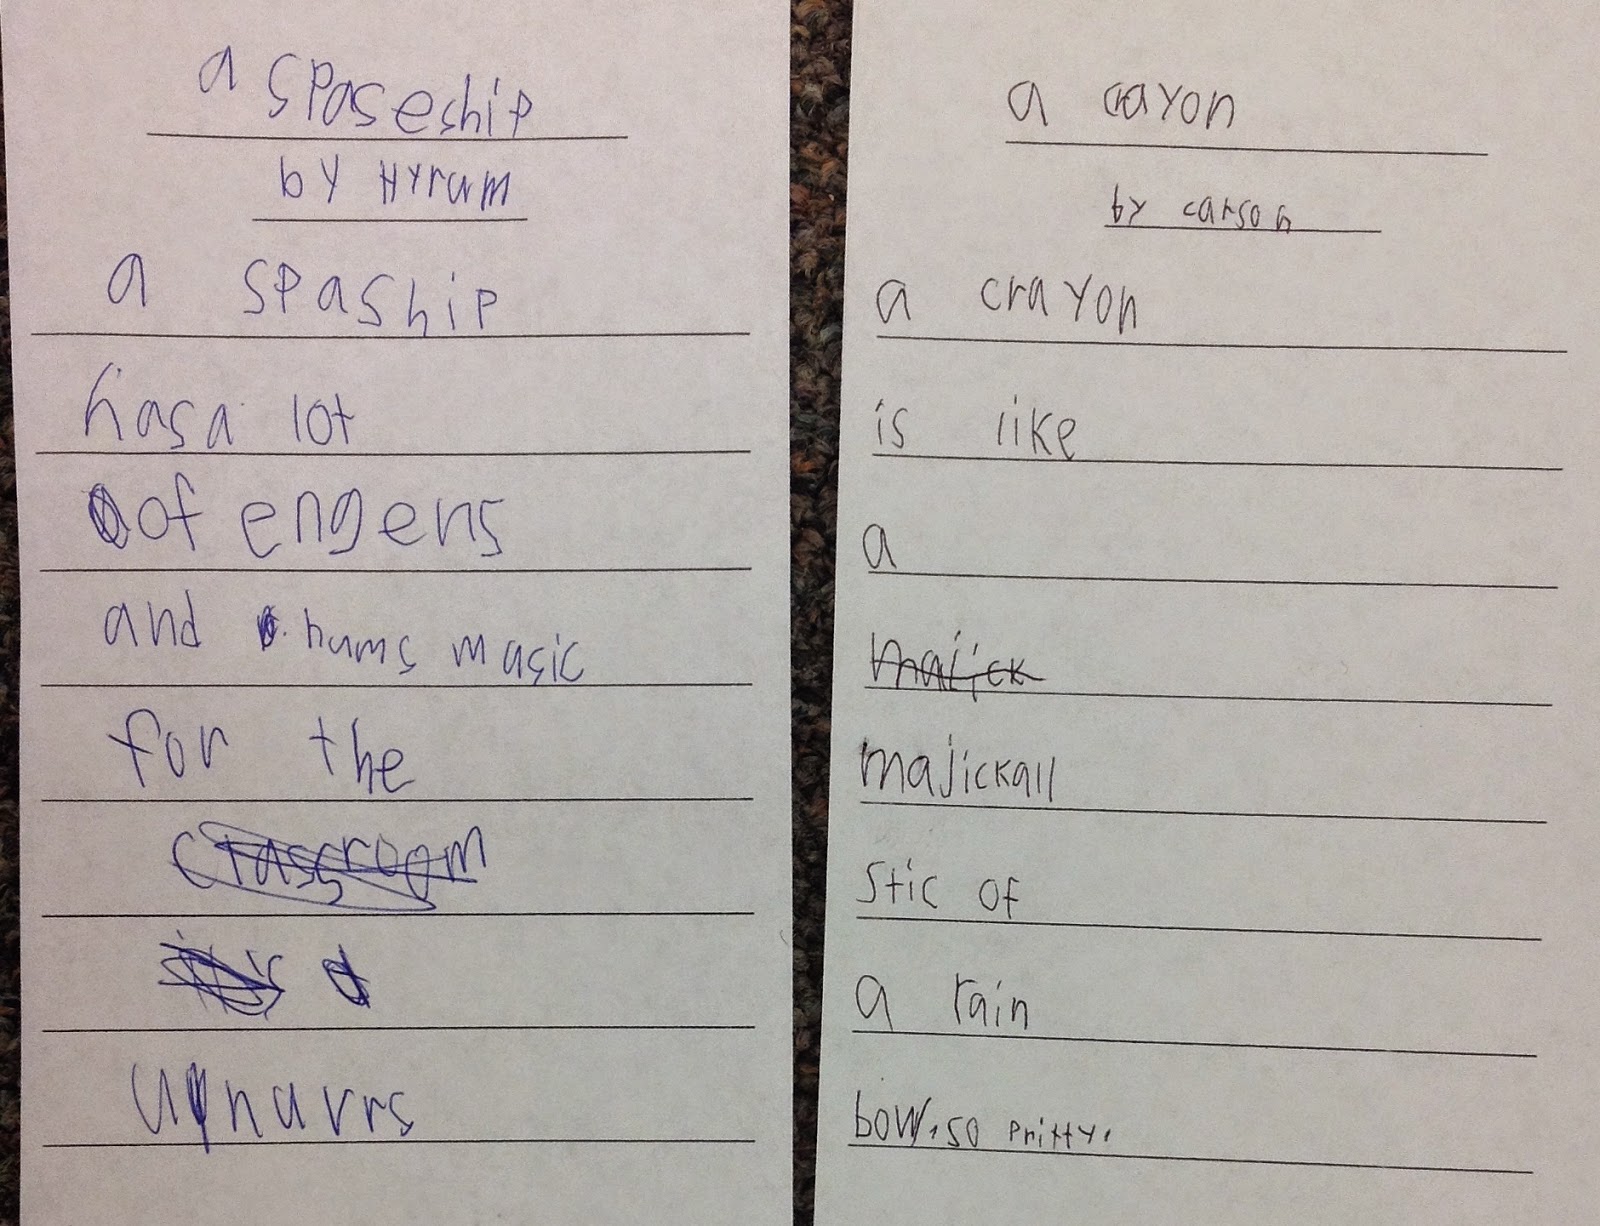 a spaseship
by Hyrum
a spaship
hasa lot
of engens
and hums music
for the
classroom
unuvrs
a crayon
by carson
a crayon
is like
a
majick
majickall
stic of
a rain
bow. so pritty.